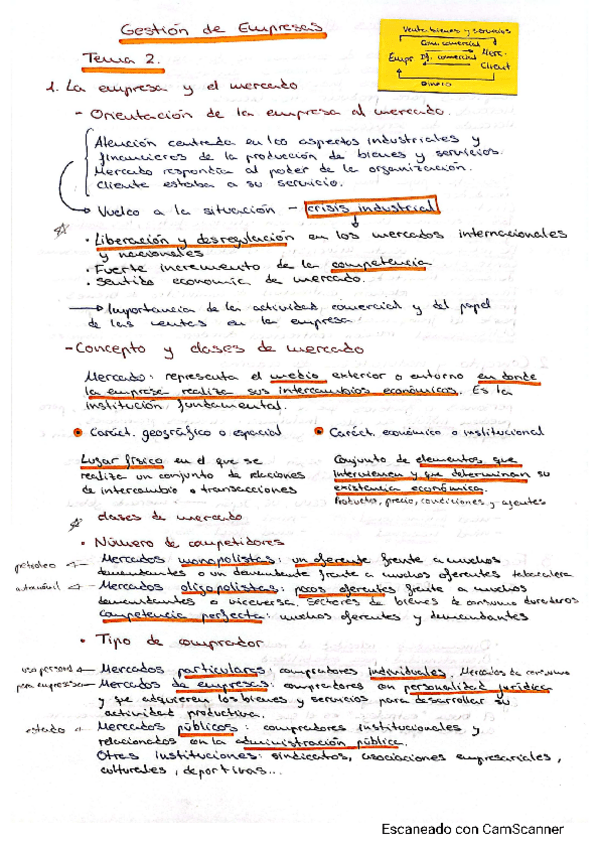 Gestión de Empresas
Venta bienes y servicios
Com. comercial
Merc.
Empr If. comercial
Client
Dinero
Tema 2.
1. La empresa y el mercado
- Orientación de la empresa al mercado.
Atención centrada en los aspectos industriales y
financieros de la producción de bienes y servicios.
Mercado respondía al poder de la organización.
Cliente estaba a su servicio.
Vuelco a la situación - crisis industrial
· Liberación y desregulación en los mercados internacionales
y nacionales
· Fuerte incremento de la competencia
· Sentido economía de mercado.
→ Importancia de la actividad comercial y del papel
de las ventas en la empresa
- Concepto y clases de mercado
Mercado: representa el medio exterior o entorno en donde
la empresa realiza sus intercambios económicos. Es la
institución fundamental.
Caráct. geográfico o espacial
Lugar físico en el que se
realiza un conjunto de relaciones
de intercambio o transacciones
Caráct. económico o institucional
Conjunto de elementos que
intervienen y que determinan su
existencia económica.
Producto, precio, condiciones y agentes
clases de mercado
· Número de competidores
petroleo ← Mercados monopolistas: un oferente frente a muchos
demandantes o un demandante frente a muchos oferentes tabacalera
automóvil ← Mercados oligopolistas: pocos oferentes frente a muchos
demandantes o viceversa, sectores de bienes de consumo duraderos
competencia perfecta: muchos oferentes y demandantes
· Tipo de comprador
uso personal ← Mercados particulares: compradores individuales. Mercados de consumo
para empresas ← Mercados de empresas: compradores con personalidad jurídica
y que adquieren los bienes y servicios para desarrollar su
actividad productiva.
estado ← Mercados públicos: compradores institucionales y
relacionados con la administración pública.
Otras instituciones: sindicatos, asociaciones empresariales,
culturales, deportivas...
Escaneado con CamScanner